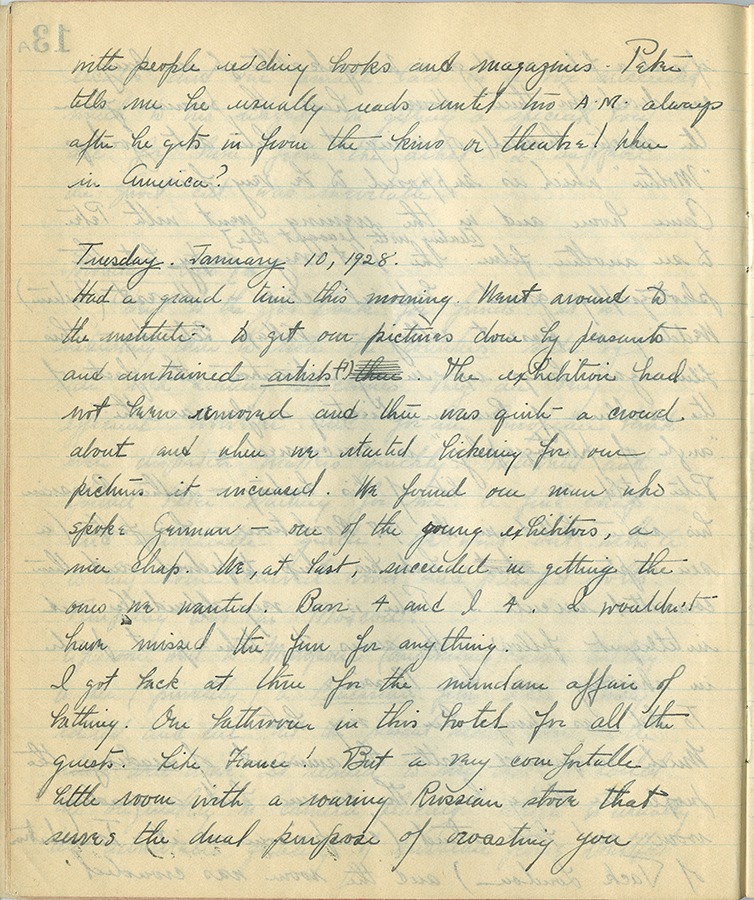 with people redding books and magazines. Petre
tells me he usually reads until two A.M. always
after he gets in from the kino or theatre! When
in America?
Tuesday. January 10, 1928.
Had a grand time this morning. Went around to
the institute - to get our pictures done by peasants
and untrained artists (?) . The exhibition had
not been removed and there was quite a crowd
about and when we started bickering for our
pictures it increased. We found one man who
spoke German – one of the young exhibitors, a
nice chap. We, at last, succeeded in getting the
ones we wanted. Barr 4 and I 4. I wouldn't
have missed the fun for anything.
I got back at three for the mundane affair of
bathing. One bathroom in this hotel for all the
guests. Like France! But a very comfortable
little room with a roaring Russian stove that
serves the dual purpose of roasting you